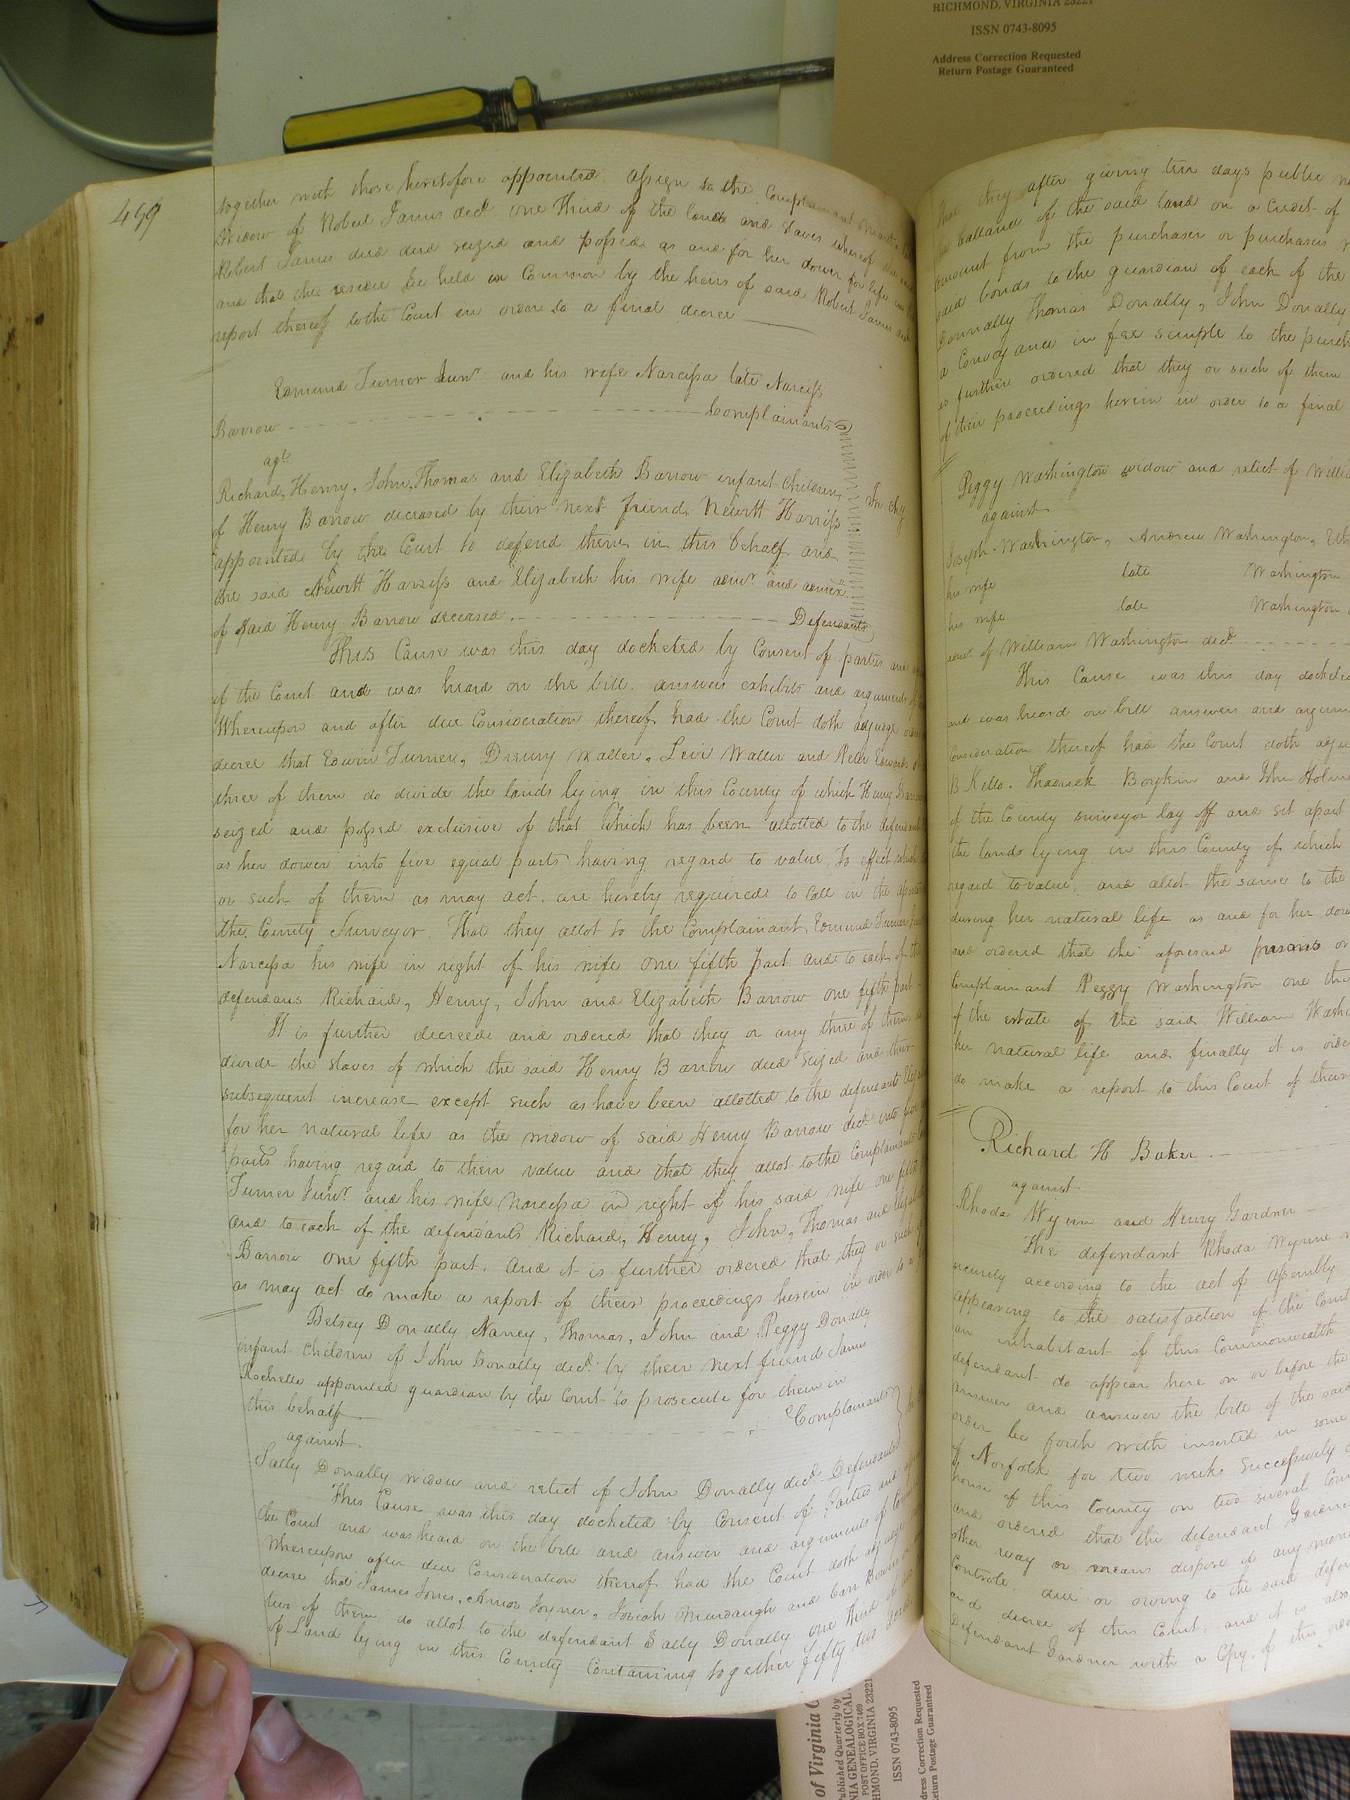 RICHMOND, VIRGINIA 23221
ISSN 0743-8095
Address Correction Requested
Return Postage Guaranteed
499
together with those heretofore appointed assign to the Complainant
Widow of Robert James decd. one third of the lands and slaves whereof the said
Robert James decd died seized and possed as and for her dower for life
and that the residue be held in Common by the heirs of said Robert James and
report thereof to the Court in order to a final decree
Edmund Turner Junr. and his wife Narcissa late Narcissa
Barrow Complainants
agt.
Richard, Henry, John, Thomas and Elizabeth Barrow infant Children
of Henry Barrow deceased by their next friend Newitt Harriss
appointed by the Court to defend them in this behalf and
the said Newitt Harriss and Elizabeth his wife admr. and admx.
of said Henry Barrow deceased Defendants
In Chy
This Cause was this day docketed by Consent of parties and
of the Court and was heard on the bill, answers exhibits and arguments
Whereupon and after due Consideration thereof had the Court doth adjudge
decree that Edwin Turner, Drewry Waller, Levi Waller and Peter Edwards
three of them do divide the lands lying in this County of which Henry Barrow
seized and possed exclusive of that which has been allotted to the
as her dower into five equal parts having regard to value, To effect which
or such of them as may act are hereby required to call in the
the County Surveyor. That they allot to the Complainant Edmund Turner
Narcissa his wife in right of his wife one fifth part and to each of the
defendans Richard, Henry, John and Elizabeth Barrow one fifth part
It is further decreed and ordered that they or any three of them
divide the slaves of which the said Henry Barrow died seized and their
subsequent increase except such as have been allotted to the defendant
for her natural life as the widow of said Henry Barrow decd. into five
parts having regard to their value and that they allot to the Complainants
Turner Junr. and his wife Narcissa in right of his said wife one fifth
and to each of the defendants Richard, Henry, John, Thomas and
Barrow one fifth part. and it is further ordered that they or such
as may act do make a report of their proceedings herein in order to a
Betsey Donally Nancy, Thomas, John and Peggy Donally
infant children of John Donally decd. by their next friend James
Rochelle appointed guardian by the Court to prosecute for them in
this behalf Complainants
against
Sally Donally widow and relict of John Donally decd. Defendant
This Cause was this day docketed by Consent of Parties and
the Court and was heard on the bill and answer and arguments of
Whereupon after due Consideration thereof had the Court doth adjudge
decree that James Jones, Amos Joyner, Josiah Murdaugh and Carr Bowers
two of them do allot to the defendant Sally Donally one third of
of Land lying in this County Containing together fifty two
that they after giving ten days public
the ballance of the said land on a Credit of
amount from the purchaser or purchasers
said bonds to the guardian of each of the
Donnally Thomas Donally, John Donally
a Conveyance in fee simple to the
is further ordered that they or such of them
of their proceedings herein in order to a final
Peggy Washington widow and relict of
against
Joseph Washington, Andrew Washington,
his wife late Washington
his wife late Washington
admr. of William Washington decd.
This Cause was this day docketed
and was heard on bill answers and
Consideration thereof had the Court doth
B Kello. Shadrack Boykin and John
of the County surveyor lay off and set apart
the lands lying in this County of which
regard to value, and allot the same to the
during her natural life as and for her
and ordered that the aforesaid persons or
Complainant Peggy Washington one
of the estate of the said William
her natural life and finally it is
do make a report to this Court of their
Richard H Baker
against
Rhoda Wynn and Henry Gardner
The defendant Rhoda Wynne
security according to the act of assembly
appearing to the satisfaction of the Court
an inhabitant of this Commonwealth
defendant do appear here on or before the
and answer the bill of the said
order be forth with inserted in some
of Norfolk for two weeks successively
house of this County on two several
and ordered that the defendant
other way or means dispose of any
Controle, due or owing to the said
and decree of this Court, and it is also
Defendant Gardner with a Copy of this
of Virginia
Published Quarterly by
VIRGINIA GENEALOGICAL
POST OFFICE BOX 7469
RICHMOND, VIRGINIA 23221
ISSN 0743-8095
Address Correction Requested
Return Postage Guaranteed